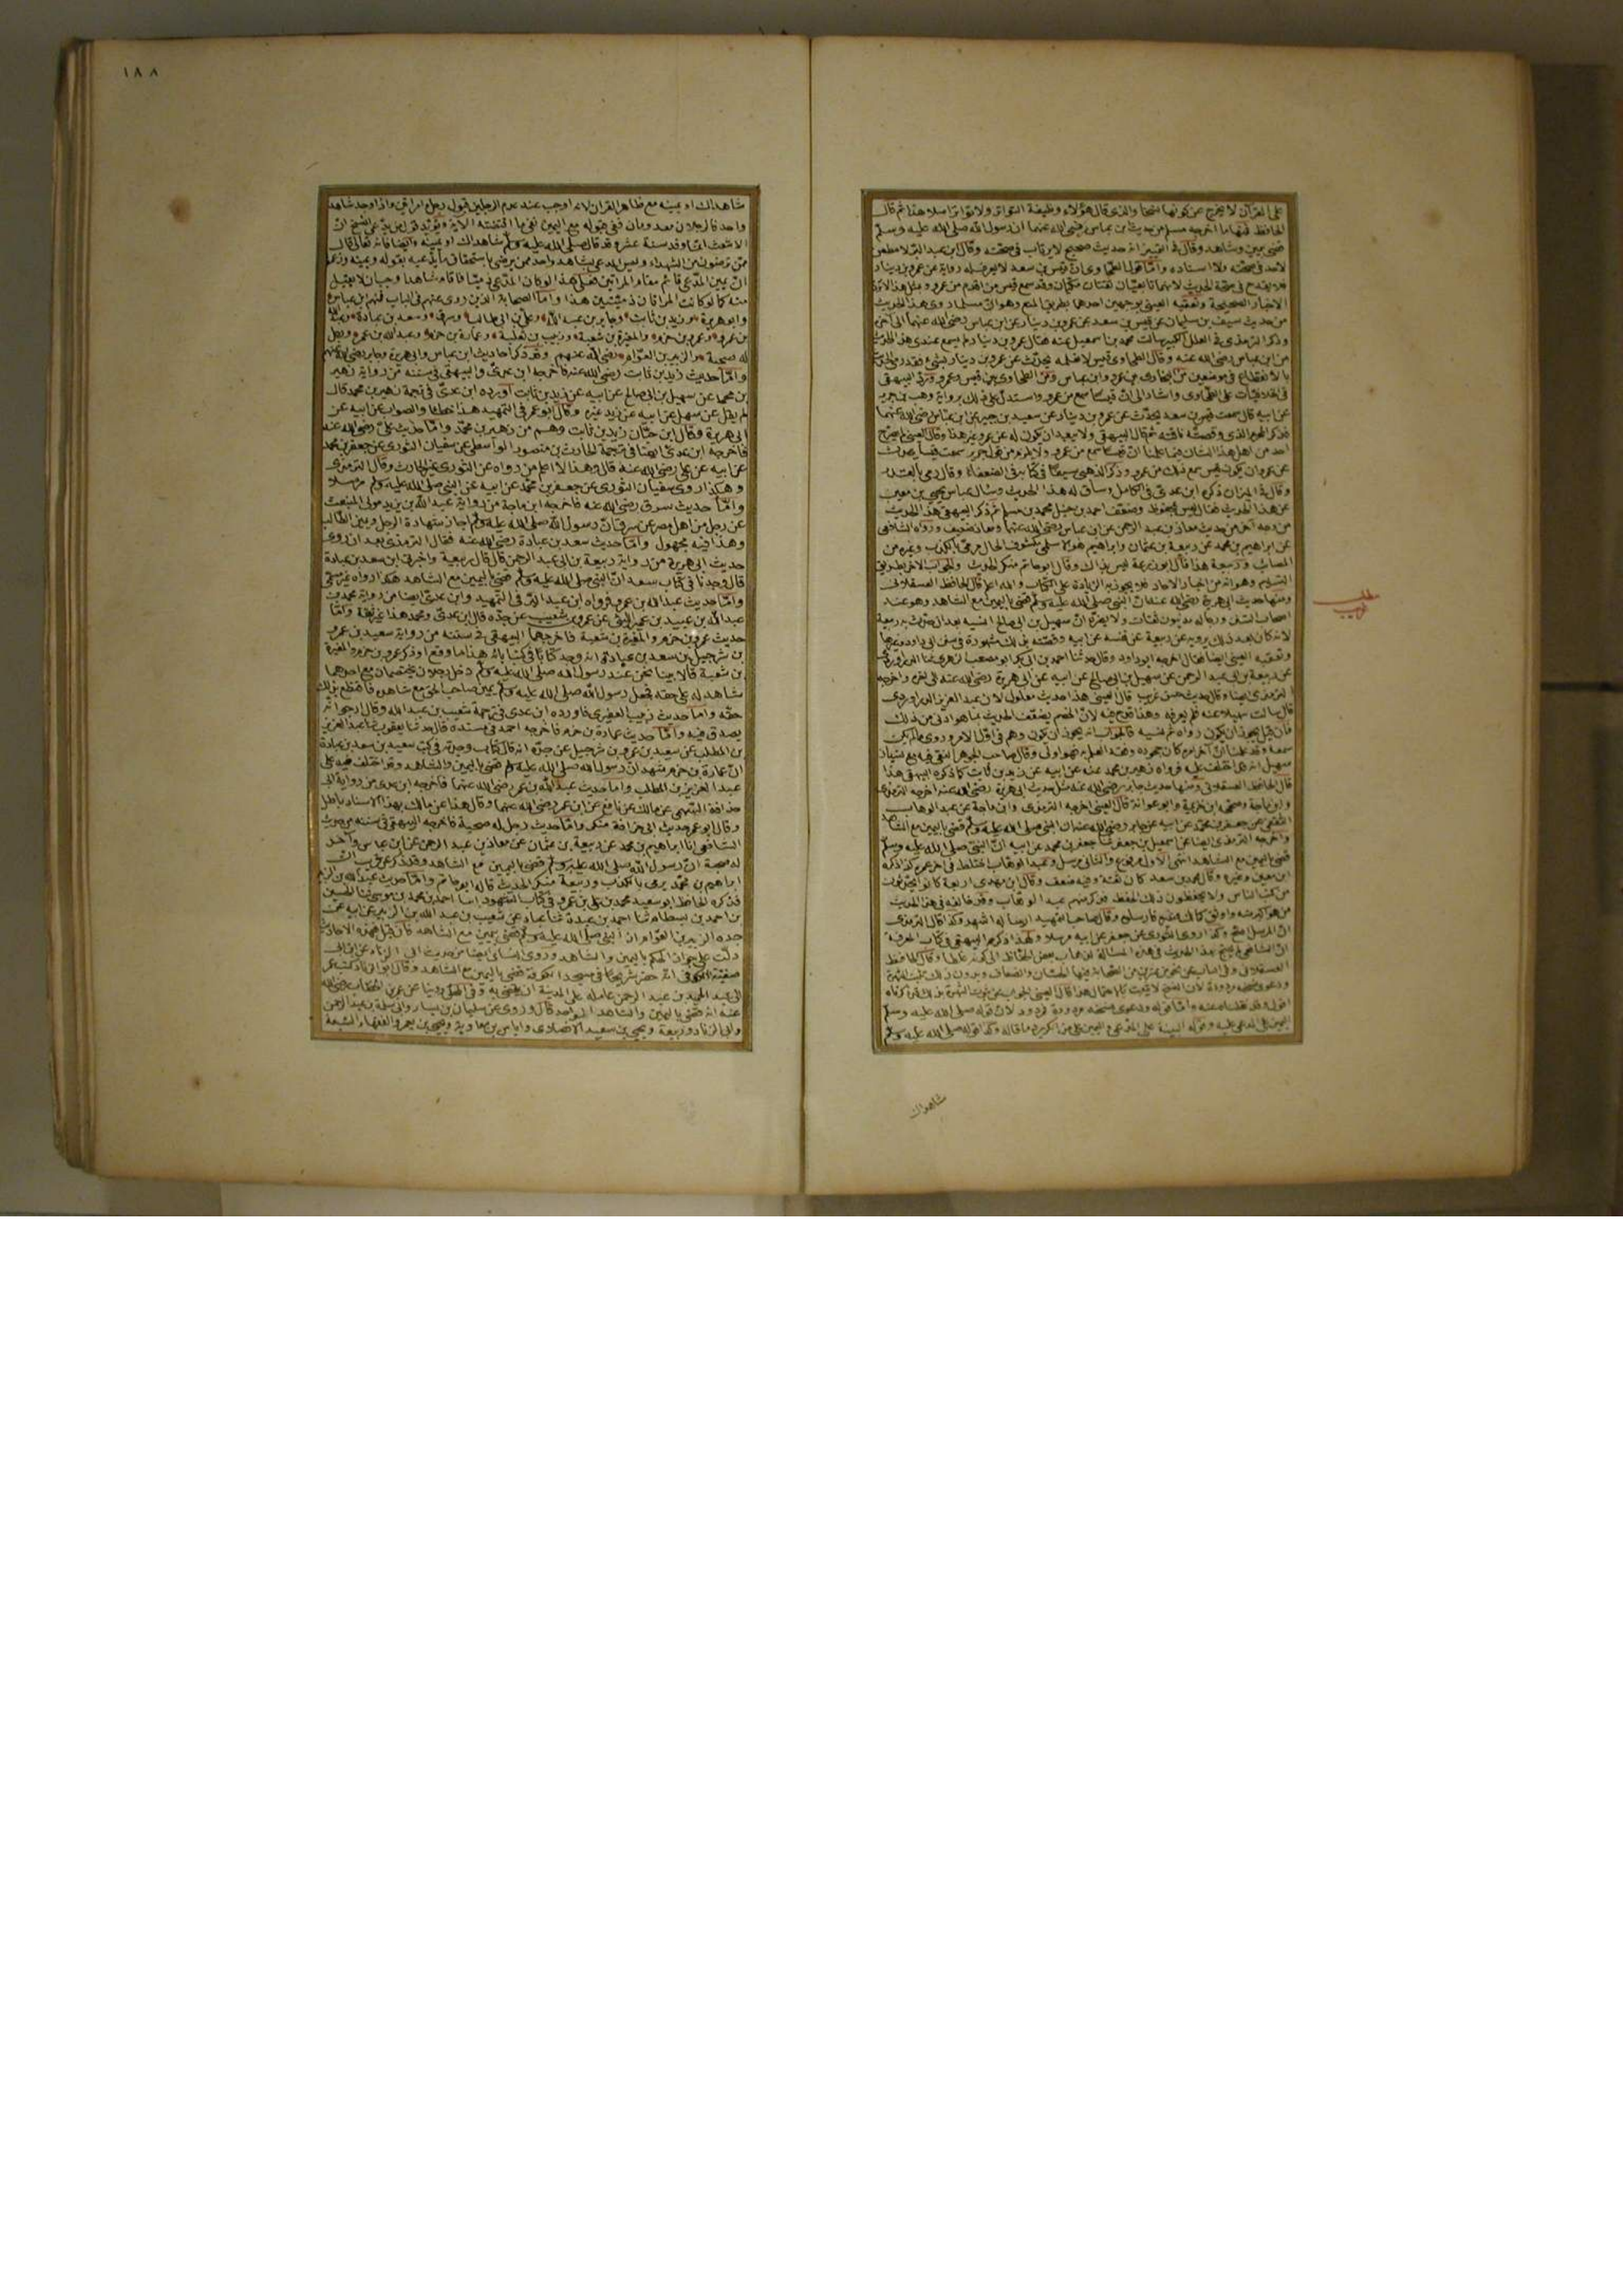 على القرآن لا يخرج عن كونها نسخا والذى قال هؤلاء وظيفة التواتر ولا تواتر اصلا هذا ثم قال
الحافظ فمنها ما اخرجه مسلم من حديث ابن عباس رضى الله عنهما ان رسول الله صلى الله عليه وسلم
قضى بيمين وشاهد وقال فى التمييز انه حديث صحيح لا يرتاب فى صحته وقال ابن عبد البر لا مطعن
لاحد فى صحته ولا اسناده وامّا قول الطحاوى انّ قيس بن سعد لا يعرف له رواية عن عمرو بن دينار
فلا يقدح فى صحة الحديث لانهما تابعيّان ثقتان مكيّان وقد سمع قيس من اقدم من عمرو وبمثل هذا لا تردّ
الاخبار الصحيحة وتعقبه العينى بوجهين احدهما بطريق المنع وهو ان مسلما روى هذا الحديث
من حديث سيف بن سليمان عن قيس بن سعد عن عمرو بن دينار عن ابن عباس رضى الله عنهما الى آخره
وذكر الترمذى فى العلل الكبير سالت محمد بن اسمعيل عنه فقال عمرو بن دينار لم يسمع عندى هذا الحديث
من ابن عباس رضى الله عنه وقال الطحاوى قيس لا نعلمه يحدّث عن عمرو بن دينار بشئ فقد رمى الحديث
بالانقطاع فى موضعين من البخارى بين عمرو وابن عباس ومن الطحاوى بين قيس وعمرو وردّ البيهقى
عن ابيه قال سمعت قيس بن سعد يحدّث عن عمرو بن دينار عن سعيد بن جبير عن ابن عباس رضى الله عنهما
فذكر المحرم الذى وقصته ناقته ثم قال البيهقى ولا يبعد ان يكون له عن عمرو غير هذا وقال العينى لم يصرّح
وقال فى الميزان ذكره ابن عدى فى الكامل وساق له هذا الحديث وسال عباس يحيى بن معين
عن هذا الحديث فقال ليس بمحفوظ وضعّف احمد بن حنبل محمد بن مسلم ثم ذكر البيهقى هذا الحديث
من وجه آخر من حديث معاذ بن عبد الرحمن عن ابن عباس رضى الله عنهما ومعاذ ضعيف ورواه الشافعى
عن ابراهيم بن محمد عن ربيعة بن عثمان وابراهيم هو الاسلمى مكشوف الحال مرمى بالكذب وغيره من
المصايب وربيعة هذا قال ابو زرعة ليس بذاك وقال ابو حاتم منكر الحديث والجواب الآخر بطريق
التسليم وهو انه من اخبار الاحاد فلا يجوز به الزيادة على الكتاب والله اعلم قال الحافظ العسقلانى
ومنها حديث ابى هريرة رضى الله عنه انّ النبى صلى الله عليه وسلم قضى باليمين مع الشاهد وهو عند
اصحاب السنن ورجاله مدنيّون ثقات ولا يضرّه انّ سهيل بن ابى صالح نسيه بعد ان حدّث به ربيعة
لانه كان بعد ذلك يرويه عن ربيعة عن نفسه عن ابيه وقصّته بذلك مشهورة فى سنن ابى داود وغيرها
وتعقبه العينى ايضا فقال اخرجه ابو داود وقال حدثنا احمد بن ابى بكر ابو مصعب الزهرى ثنا الدراوردى
عن ربيعة بن ابى عبد الرحمن عن سهيل بن ابى صالح عن ابيه عن ابى هريرة رضى الله عنه الى آخره واخرجه
الترمذى ايضا وقال حديث حسن غريب قال العينى هذا حديث معلول لان عبد العزيز الدراوردى
قال سالت سهيلا عنه فلم يعرفه وهذا قدح فيه لانّ الخصم يضعّف الحديث بما هو ادنى من ذلك
فان قيل يجوز ان يكون رواه ثم نسيه فالجواب انه يجوز ان يكون وهم فى اوّل الامر وروى ما لم يكن
سمعه وقد علمنا انّ آخر امره كان جحوده وفقد العلم به فهو اولى وقال صاحب الجوهر النقى فيه مع نسيان
سهيل انه قد اختلف عليه فرواه زهير بن محمد عنه عن ابيه عن زيد بن ثابت كما ذكره البيهقى هذا
قال الحافظ العسقلانى ومنها حديث جابر رضى الله عنه مثل حديث ابى هريرة رضى الله عنه اخرجه الترمذى
وابن ماجة وصححه ابن خزيمة وابو عوانة قال العينى اخرجه الترمذى وابن ماجة عن عبد الوهاب
الثقفى عن جعفر بن محمد عن ابيه عن جابر رضى الله عنه ان النبى صلى الله عليه وسلم قضى باليمين مع الشاهد
واخرجه الترمذى ايضا عن اسمعيل بن جعفر ثنا جعفر بن محمد عن ابيه انّ النبىّ صلى الله عليه وسلم
قضى باليمين مع الشاهد انتهى الاول مرفوع والثانى مرسل وعبد الوهاب اختلط فى آخر عمره كذا ذكره
ابن معين وغيره وقال محمد بن سعد كان ثقة وفيه ضعف وقال ابن مهدى اربعة كانوا يحدّثون
من كتب الناس ولا يحفظون ذلك الحفظ فذكر منهم عبد الوهّاب وقد خالفه فى هذا الحديث
انّ المرسل اصحّ وكذا روى الثورى عن جعفر عن ابيه مرسلا ولهذا ذكر البيهقى فى كتاب المعرفة
ودعوى نسخه مردودة لان النسخ لا يثبت بالاحتمال هذا قال العينى
اليمين على المدعى عليه وقوله البينة على المدعى واليمين على من انكر يردّ ما قاله وكذا قوله صلى الله عليه وسلم
مطلب
شاهداك
١٨٨
شاهداك او يمينه مع ظاهر القرآن لانه اوجب عند عدم الرجلين قبول رجل وامراتين واذا وجد شاهد
الاشعث انّما وفد سنة عشر وقد قال صلى الله عليه وسلم شاهداك او يمينه وايضا فانه تعالى قال
ممّن ترضون من الشهداء وليس المدعى بشاهد واحد ممن يرضى باستحقاق ما يدّعيه بقوله ويمينه وزعم
انّ يمين المدّعى قائم مقام المراتين فعلى هذا لو كان المدّعى ذميّا فاقام شاهدا وجب ان لا يقبل
منه كما لو كانت المراتان ذميّتين هذا وامّا الصحابة الذين روى عنهم فى الباب فهم ابن عباس
وابو هريرة وزيد بن ثابت وجابر بن عبد الله وعلى بن ابى طالب وسرق وسعد بن عبادة وعبد الله
بن عمرو وعمرو بن حزم والمغيرة بن شعبة وزبيب بن ثعلبة وعمارة بن حزم وعبد الله بن عمر ورجل
له صحبة والزبير بن العوّام رضى الله عنهم وقد ذكر احاديث ابن عباس وابى هريرة وجابر رضى الله عنهم
وامّا حديث زيد بن ثابت رضى الله عنه فاخرجه ابن عدىّ والبيهقى فى سننه من رواية زهير
بن محمد عن سهيل بن ابى صالح عن ابيه عن زيد بن ثابت اورده ابن عدىّ فى ترجمة زهير بن محمد قال
لم يقل عن سهل عن ابيه عن زيد غيره وقال ابو عمر فى التمهيد هذا خطا والصواب عن ابيه عن
ابى هريرة وقال ابن حبّان زيد بن ثابت وهم من زهير بن محمّد وامّا حديث علىّ رضى الله عنه
فاخرجه ابن عدىّ ايضا فى ترجمة الحارث بن منصور الواسطى عن سفيان الثورى عن جعفر بن محمد
عن ابيه عن على رضى الله عنه قال وهذا لا اعلم من رواه عن الثورى غير الحارث وقال الترمذى
وهكذا روى سفيان الثورى عن جعفر بن محمّد عن ابيه عن النبى صلى الله عليه وسلم مرسلا
وامّا حديث سرق رضى الله عنه فاخرجه ابن ماجة من رواية عبد الله بن يزيد مولى المنبعث
عن رجل من اهل مصر عن سرق انّ رسول الله صلى الله عليه وسلم اجاز شهادة الرجل ويمين الطالب
وهذا فيه مجهول وامّا حديث سعد بن عبادة رضى الله عنه فقال الترمذى بعد ان روى
حديث ابى هريرة من رواية ربيعة بن ابى عبد الرحمن قال قال ربيعة واخبرنى ابن سعد بن عبادة
قال وجدنا فى كتاب سعد انّ النبى صلى الله عليه وسلم قضى باليمين مع الشاهد هكذا رواه غير مسمّى
وامّا حديث عبد الله بن عمرو فرواه ابن عبد البرّ فى التمهيد وابن عدىّ ايضا من رواية محمد بن
عبد الله بن عبيد بن عمير الليثى عن عمرو بن شعيب عن جدّه قال ابن عدىّ ومحمد هذا غير ثقة وامّا
حديث عمرو بن حزم والمغيرة بن شعبة فاخرجهما البيهقى فى سننه من رواية سعيد بن عمرو
بن شرحبيل بن سعد بن عبادة انه وجد كتابا فى كتب آبائه هذا ما وقع او ذكر عمرو بن حزم والمغيرة
بن شعبة قالا بينا نحن عند رسول الله صلى الله عليه وسلم دخل رجلان يختصمان مع احدهما
شاهد له على حقه فجعل رسول الله صلى الله عليه وسلم يمين صاحب الحق مع شاهده فاقتطع بذلك
حقّه وامّا حديث زبيب العنبرى فاورده ابن عدى فى ترجمة شعيب بن عبد الله وقال ارجو انه
يصدق فيه وامّا حديث عمارة بن حزم فاخرجه احمد فى مسنده قال حدثنا يعقوب ثنا عبد العزيز
بن المطلب عن سعيد بن عمرو بن شرحبيل عن جدّه انه قال كتاب وجدته فى كتب سعيد بن سعد بن عبادة
انّ عمارة بن حزم شهد ان رسول الله صلى الله عليه وسلم قضى باليمين والشاهد وقد اختلف فيه على
عبد العزيز بن المطلب وامّا حديث عبد الله بن عمر رضى الله عنهما فاخرجه ابن عدى من رواية ابى
حذافة السّهمى عن مالك عن نافع عن ابن عمر رضى الله عنهما وقال هذا عن مالك بهذا الاسناد باطل
وقال ابو عمر حديث ابى حذافة منكر وامّا حديث رجل له صحبة فاخرجه البيهقى فى سننه من حديث
الشافعى انا ابراهيم بن محمد عن ربيعة بن عثمان عن معاذ بن عبد الرحمن عن ابن عباس وآخر
له صحبة انّ رسول الله صلى الله عليه وسلم قضى باليمين مع الشاهد وقد ذكر عن قريب انّ
ابراهيم بن محمّد يرمى بالكذب وربيعة منكر الحديث قاله ابو حاتم وامّا حديث عبد الله بن الزبير
فذكره الحافظ ابو سعيد محمد بن على بن عمرو فى كتاب الشهود انبا احمد بن محمد بن موسى ثنا الحسين
بن احمد بن بسطام ثنا احمد بن عبدة ثنا عباد عن شعيب بن عبد الله بن الزبير عن ابيه عن
جده الزبير بن العوّام ان النبى صلى الله عليه وسلم قضى بيمين مع الشاهد فان قيل فهذه الاحاديث
دلّت على جواز الحكم باليمين والشاهد وروى النسائى ايضا من حديث ابى الزناد عن ابن ابى
صفيّة الكوفى انّه حضر شريحا فى مسجد الكوفة قضى باليمين مع الشاهد وقال ابو الزناد كتب عمر
الى عبد الحميد بن عبد الرحمن عامله على المدينة ان يقضى به وفى المحلّى روينا عن عمر بن الخطاب رضى الله
عنه انه قضى باليمين والشاهد الواحد قال وروى عن سليمان بن يسار وابى سلمة بن عبد الرحمن
وابى الزناد وربيعة ويحيى بن سعيد الانصارى واياس بن معاوية ويحيى بن يعمر والفقهاء السبعة